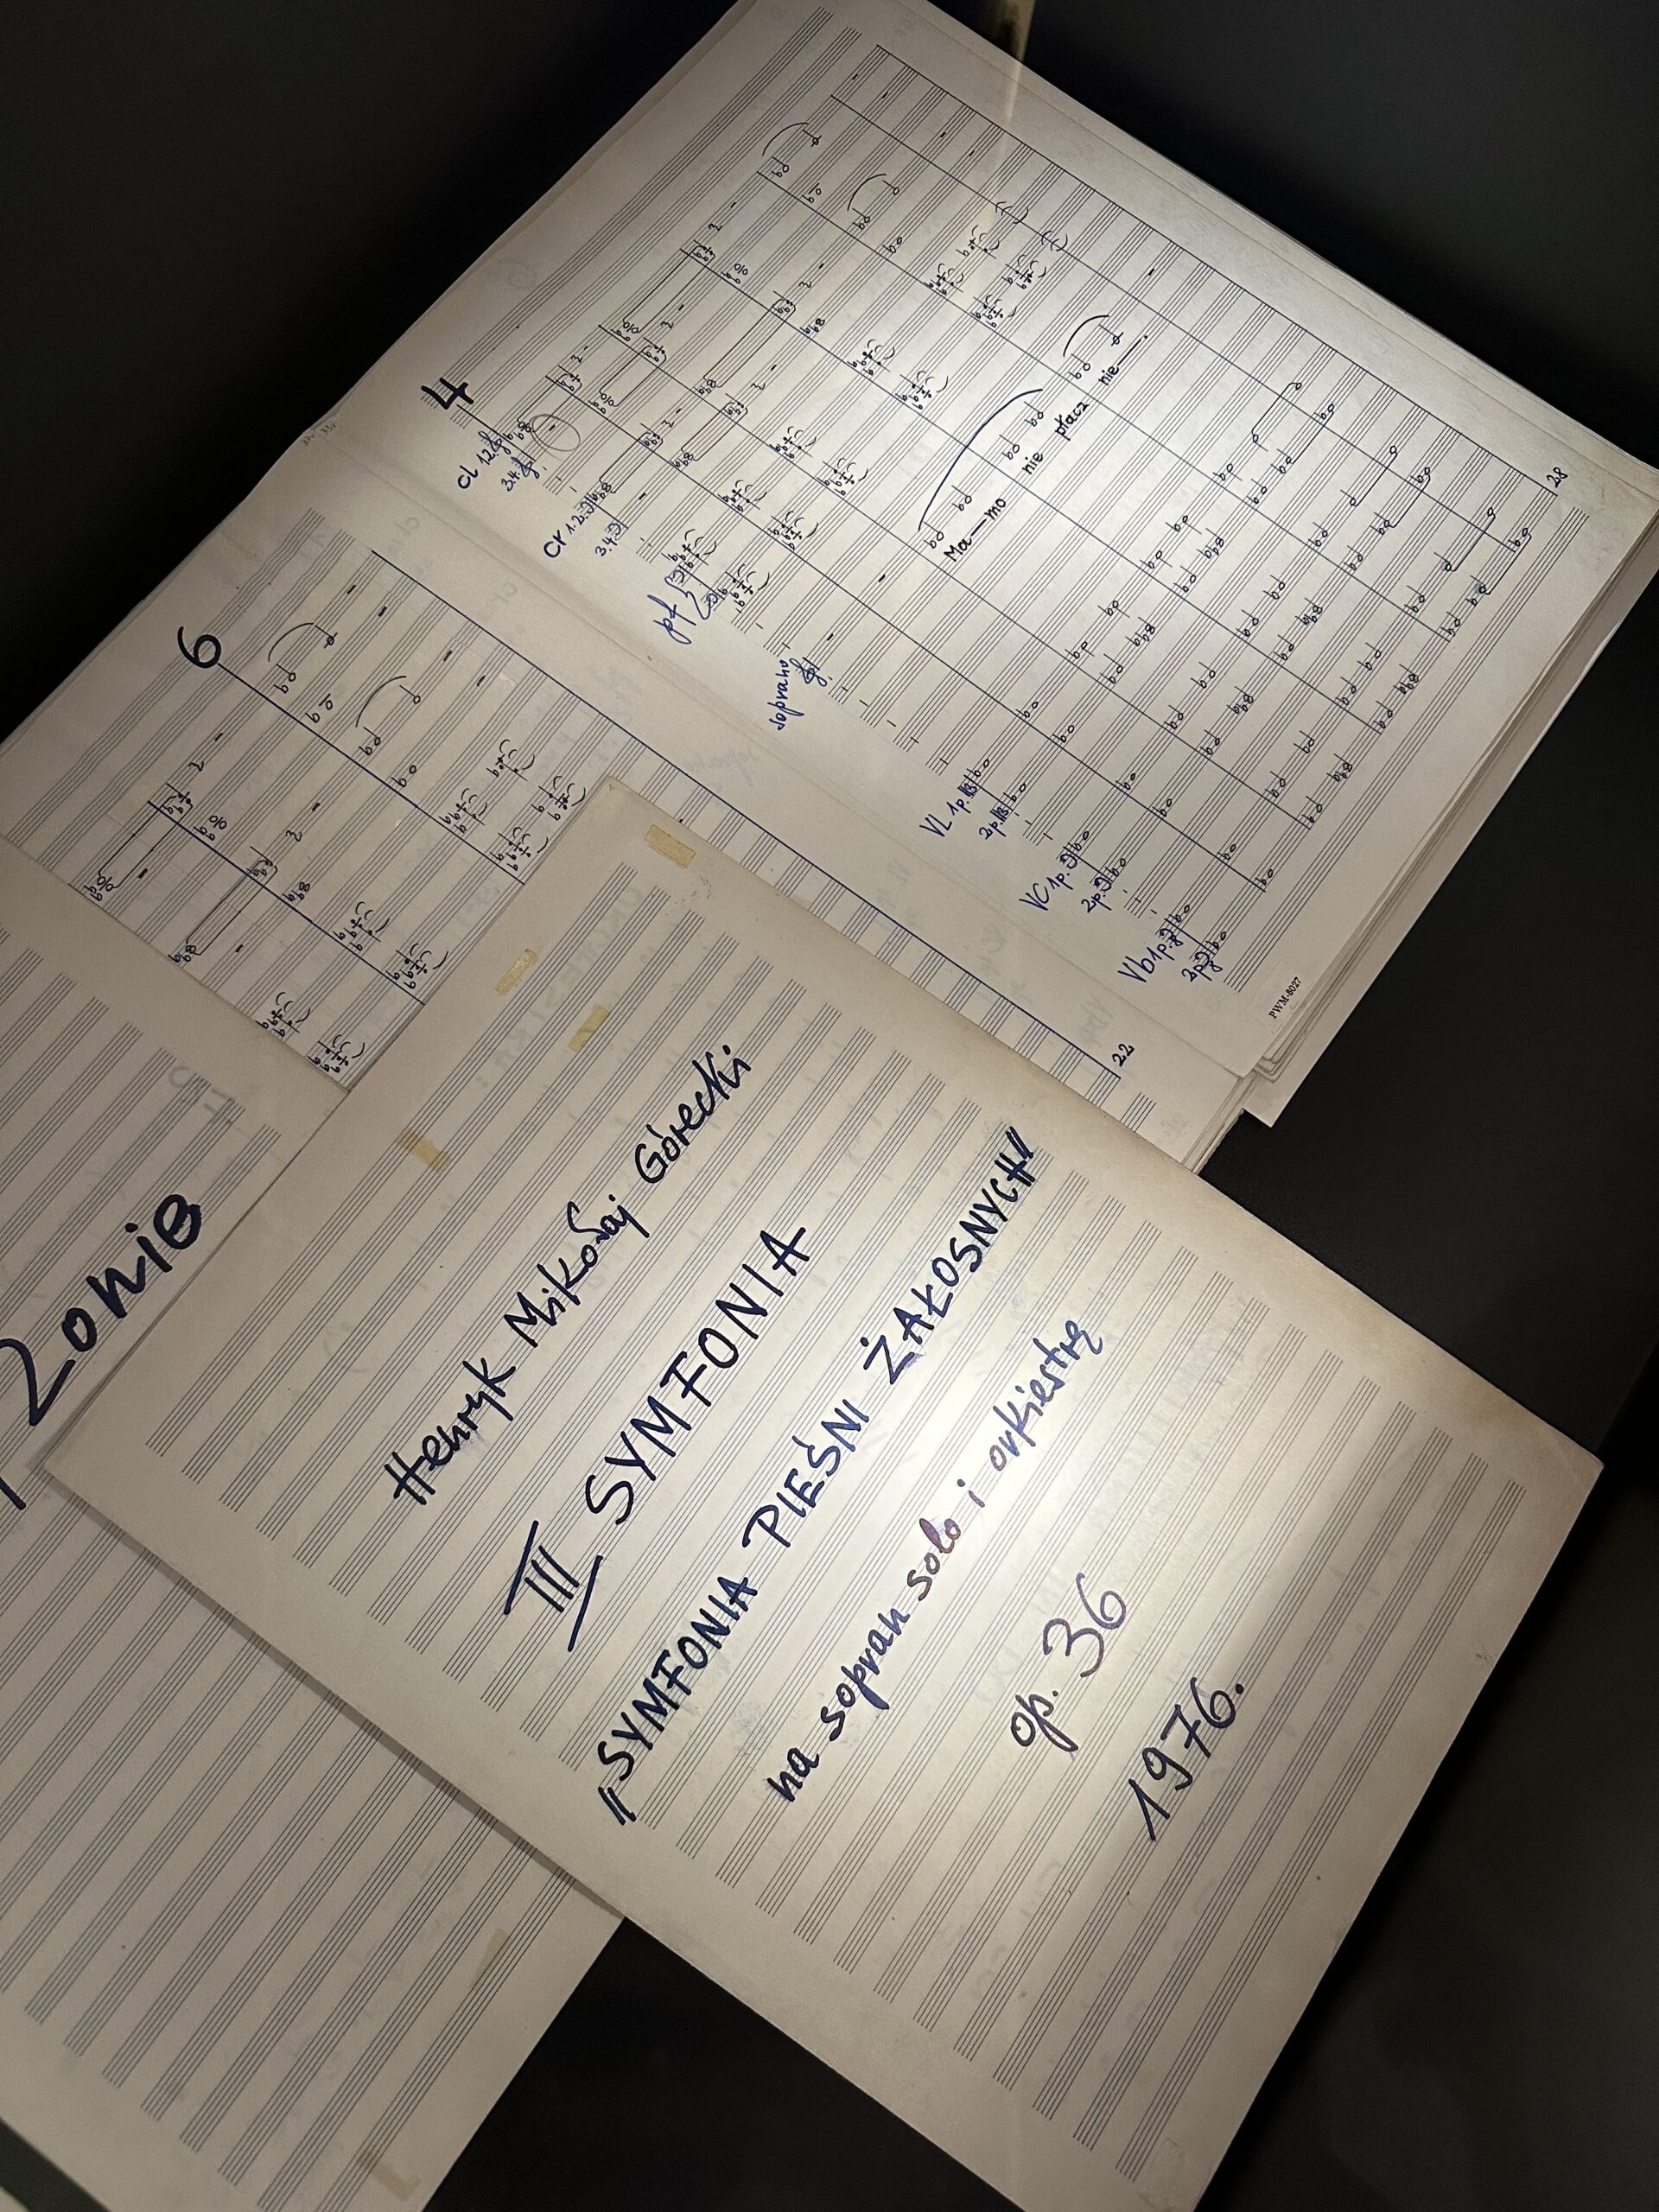 Henryk Mikołaj Górecki
III SYMFONIA
„SYMFONIA PIEŚNI ŻAŁOSNYCH"
na sopran solo i orkiestrę
op. 36
1976.
żonie
6
22
4
cl 1.2.
3.4.
cr 1.2.
3.4.
pf
soprano
Ma—mo nie płacz nie
VL 1p.
2p.
VC 1p.
2p.
Vb 1p.
2p.
28
PWM-8027